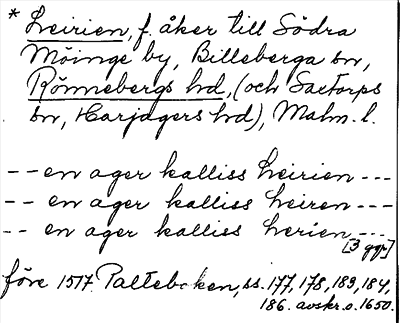 * Leirien, f. åker till Södra
Möinge by, Billeberga sn,
Rönnebergs hd, (och Saxtorps
sn, Harjagers hd), Malm. l.
-- en ager kalliss Leirien ---
-- en ager kalliss Leiren ---
-- en ager kalliss Lerien ---
[3 ggr]
före 1517 Palteboken, ss. 177, 178, 183, 184,
186. avskr. o. 1650.